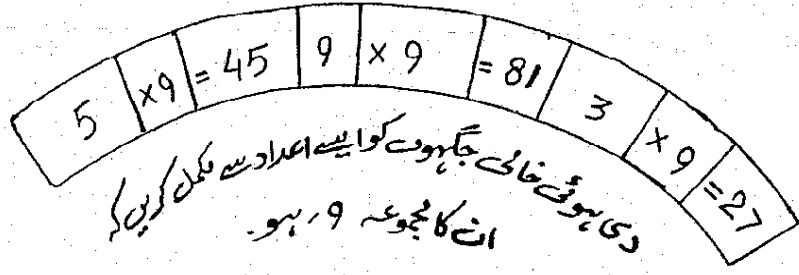 5 ×9 = 45 9 × 9 = 81 3 × 9 = 27
دی ہوئی خالی جگہوں کو ایسے اعداد سے مکمل کریں کہ
ان کا مجموعہ 9 ہو۔